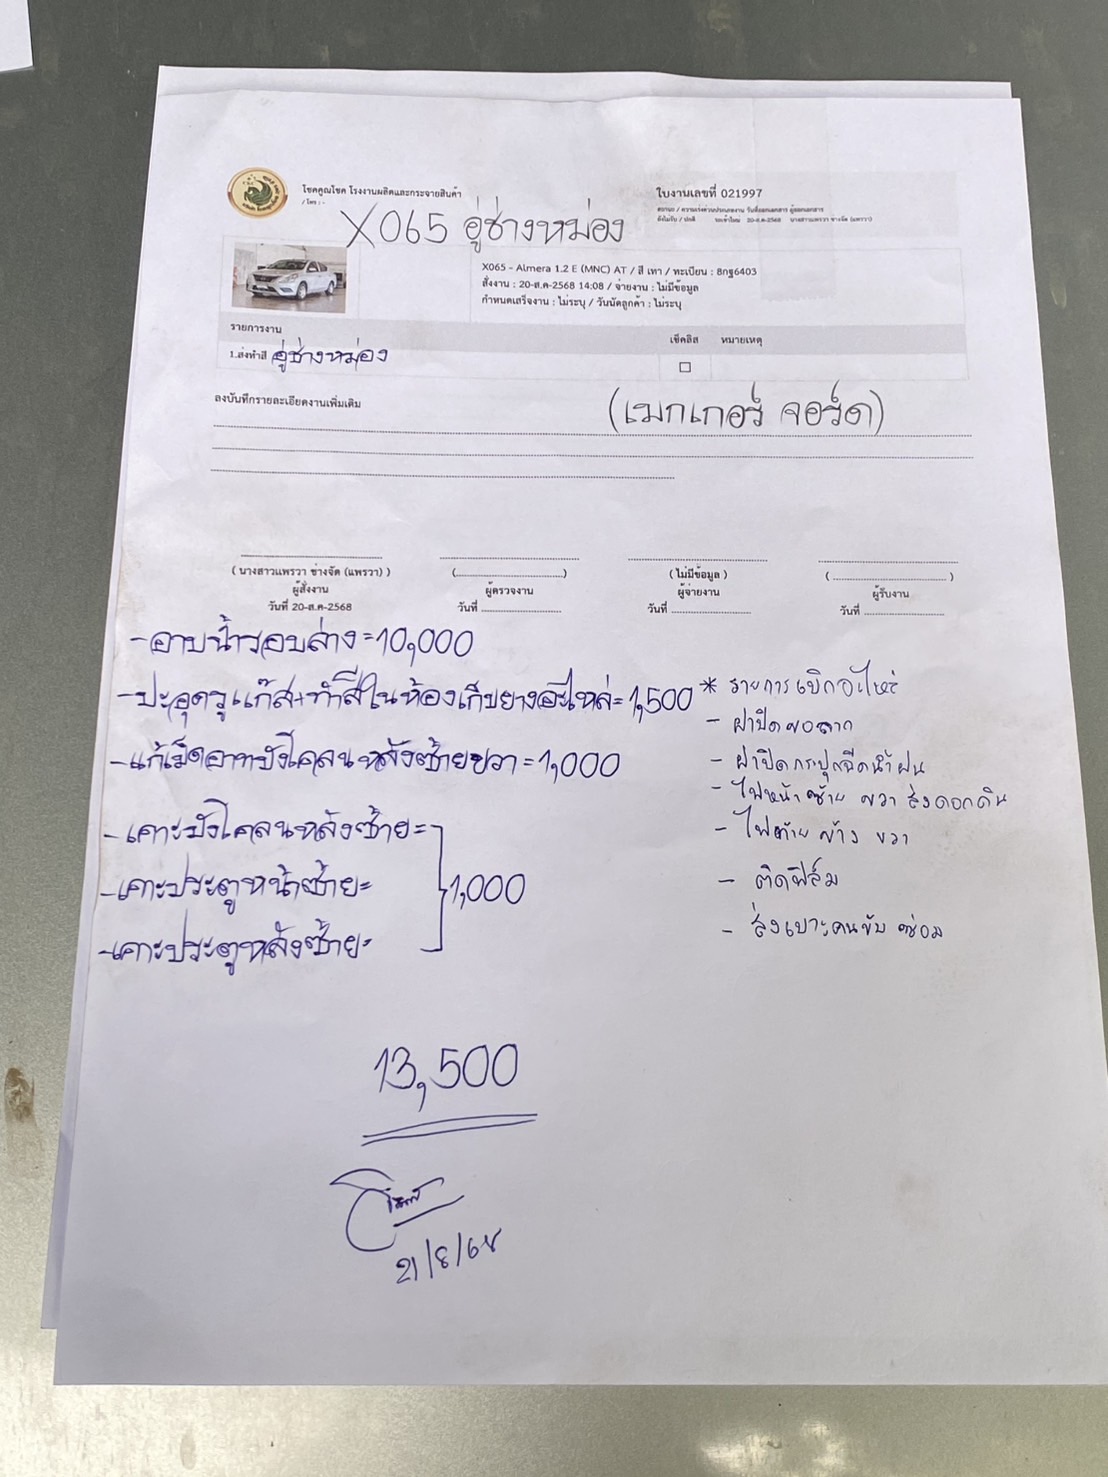 โชคคูณโชค โรงงานผลิตและกระจายสินค้า
/ โทร : -
ใบงานเลขที่ 021997
X065 อู่ช่างหม่อง
X065 - Almera 1.2 E (MNC) AT / สี เทา / ทะเบียน : 8กฐ6403
สั่งงาน : 20-ส.ค-2568 14:08 / จ่ายงาน : ไม่มีข้อมูล
กำหนดเสร็จงาน : ไม่ระบุ / วันนัดลูกค้า : ไม่ระบุ
รายการงาน เช็คลิส หมายเหตุ
1.ส่งทำสี อู่ช่างหม่อง
ลงบันทึกรายละเอียดงานเพิ่มเติม
(เมกเกอร์ จอร์ด)
( นางสาวแพรวา ช่างจัด (แพรวา) ) (........................) ( ไม่มีข้อมูล ) (........................)
ผู้สั่งงาน ผู้ตรวจงาน ผู้จ่ายงาน ผู้รับงาน
วันที่ 20-ส.ค-2568 วันที่ .................. วันที่ .................. วันที่ ..................
-อาบน้ำรอบล่าง=10,000
-ปะอุดรูแก๊ส+ทำสีในห้องเก็บยางอะไหล่=1,500
-แก้เม็ดอาทบังโคลนหลังซ้ายขวา=1,000
-เคาะบังโคลนหลังซ้าย=
-เคาะประตูหน้าซ้าย=
1,000
-เคาะประตูหลังซ้าย=
* รายการเบิกอะไหล่
- ฝาปิดขอลาก
- ฝาปิดกระปุกฉีดน้ำฝน
- ไฟหน้า ซ้าย ขวา ส่งดอกดิน
- ไฟท้าย ข้าง ขวา
- ติดฟิล์ม
- ส่งเบาะคนขับ ซ่อม
13,500
21/8/68